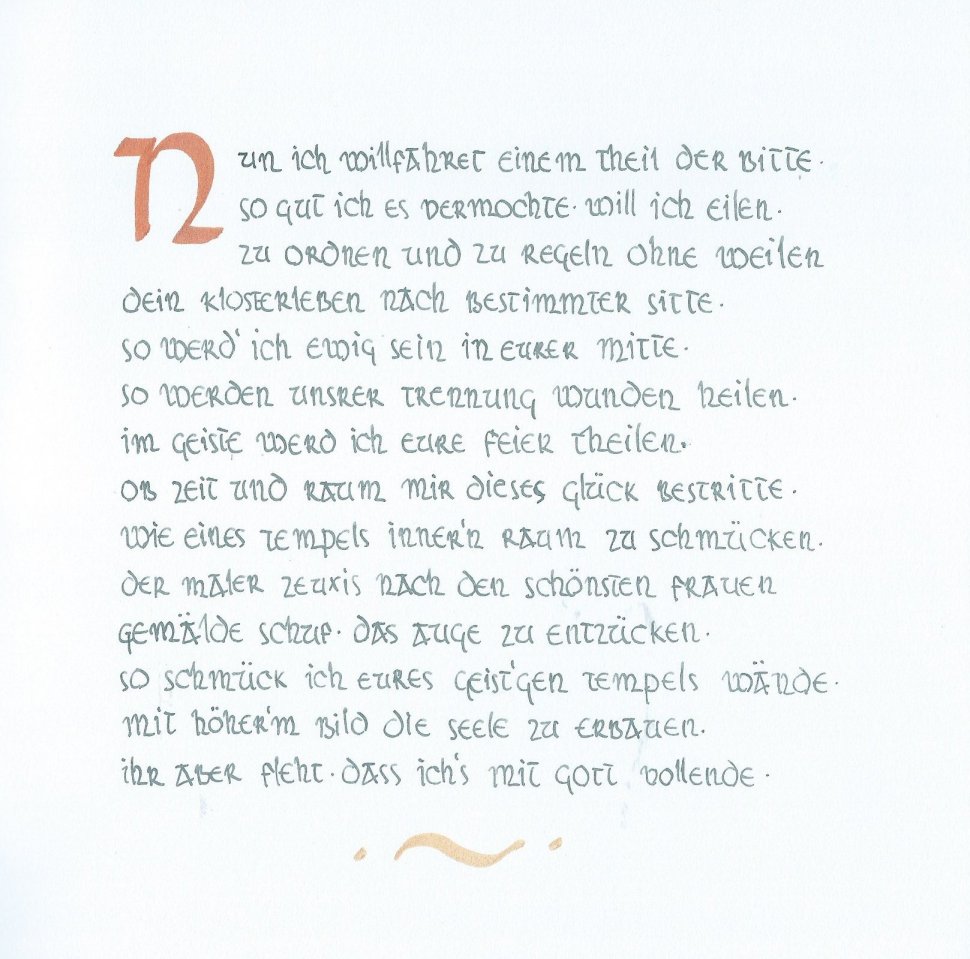 Nun ich willfahret einem theil der bitte·
so gut ich es vermochte· will ich eilen·
zu ordnen und zu regeln ohne weilen
dein klosterleben nach bestimmter sitte·
so werd' ich ewig sein in eurer mitte·
so werden unsrer trennung wunden heilen·
im geiste werd ich eure feier theilen·
ob zeit und raum mir dieses glück bestritte·
wie eines tempels innern'n raum zu schmücken·
der maler zeuxis nach den schönsten frauen
gemälde schuf· das auge zu entzücken·
so schmück ich eures geist'gen tempels wände·
mit höher'm bild die seele zu erbauen·
ihr aber fleht· dass ich's mit gott vollende·